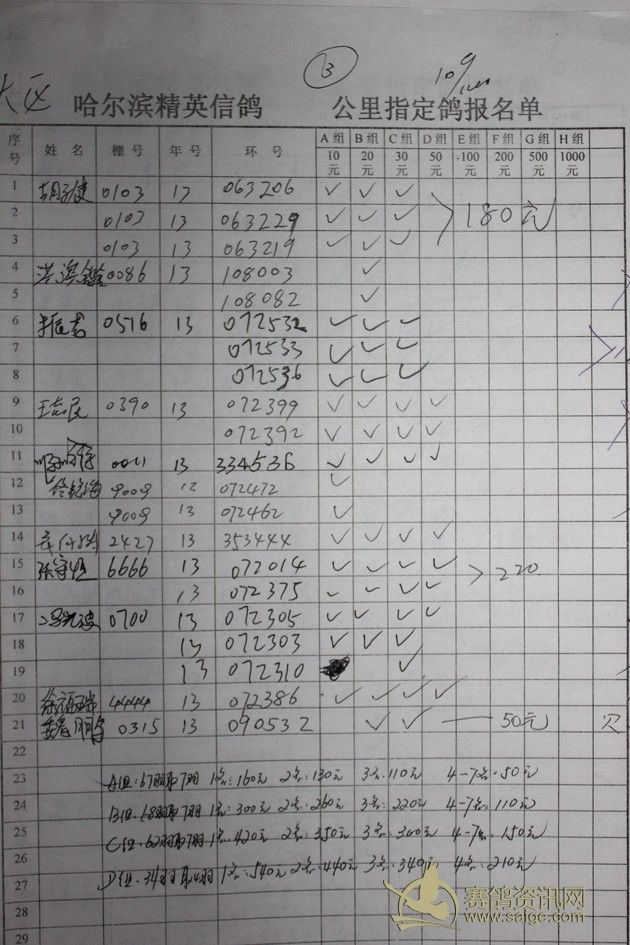 3 10/9
大区 哈尔滨精英信鸽 公里指定鸽报名单
序号 姓名 棚号 年号 环号 A组 10元 B组 20元 C组 30元 D组 50元 E组 -100元 F组 200元 G组 500元 H组 1000元
1 0103 13 063206 ✓ ✓ ✓
2 0103 13 063229 ✓ ✓ ✓ 180元
3 0103 13 063219 ✓ ✓ ✓
4 洪滨鑫 0086 13 108003 ✓
5 108082 ✓
6 0516 13 072532 ✓ ✓ ✓
7 072533 ✓ ✓ ✓
8 072536 ✓ ✓ ✓
9 王志民 0390 13 072399 ✓ ✓ ✓ ✓
10 072392 ✓ ✓ ✓ ✓
11 0011 13 334536 ✓ ✓ ✓ ✓
12 9009 13 072472 ✓
13 9009 13 072462 ✓
14 2427 13 353444 ✓ ✓ ✓ ✓
15 张守恒 6666 13 072014 ✓ ✓ ✓ ✓ 220
16 13 072375 ✓ ✓ ✓ ✓
17 冯光波 0700 13 072305 ✓ ✓ ✓ ✓
18 13 072303 ✓ ✓ ✓
19 13 072310 ✓
20 徐福瑞 4444 13 072386 ✓ ✓ ✓ ✓
21 0315 13 090532 ✓ ✓ 50元 欠
22
23 A组:67羽取7羽 1名:160元 2名:130元 3名:110元 4-7名:50元
24 B组:68羽取7羽 1名:300元 2名:260元 3名:220元 4-7名:110元
25 C组:62羽取7羽 1名:420元 2名:350元 3名:300元 4-7名:150元
26
27 D组:34羽取4羽 1名:540元 2名:440元 3名:340元 4名:210元
28
29
赛鸽资讯网
www.saige.com